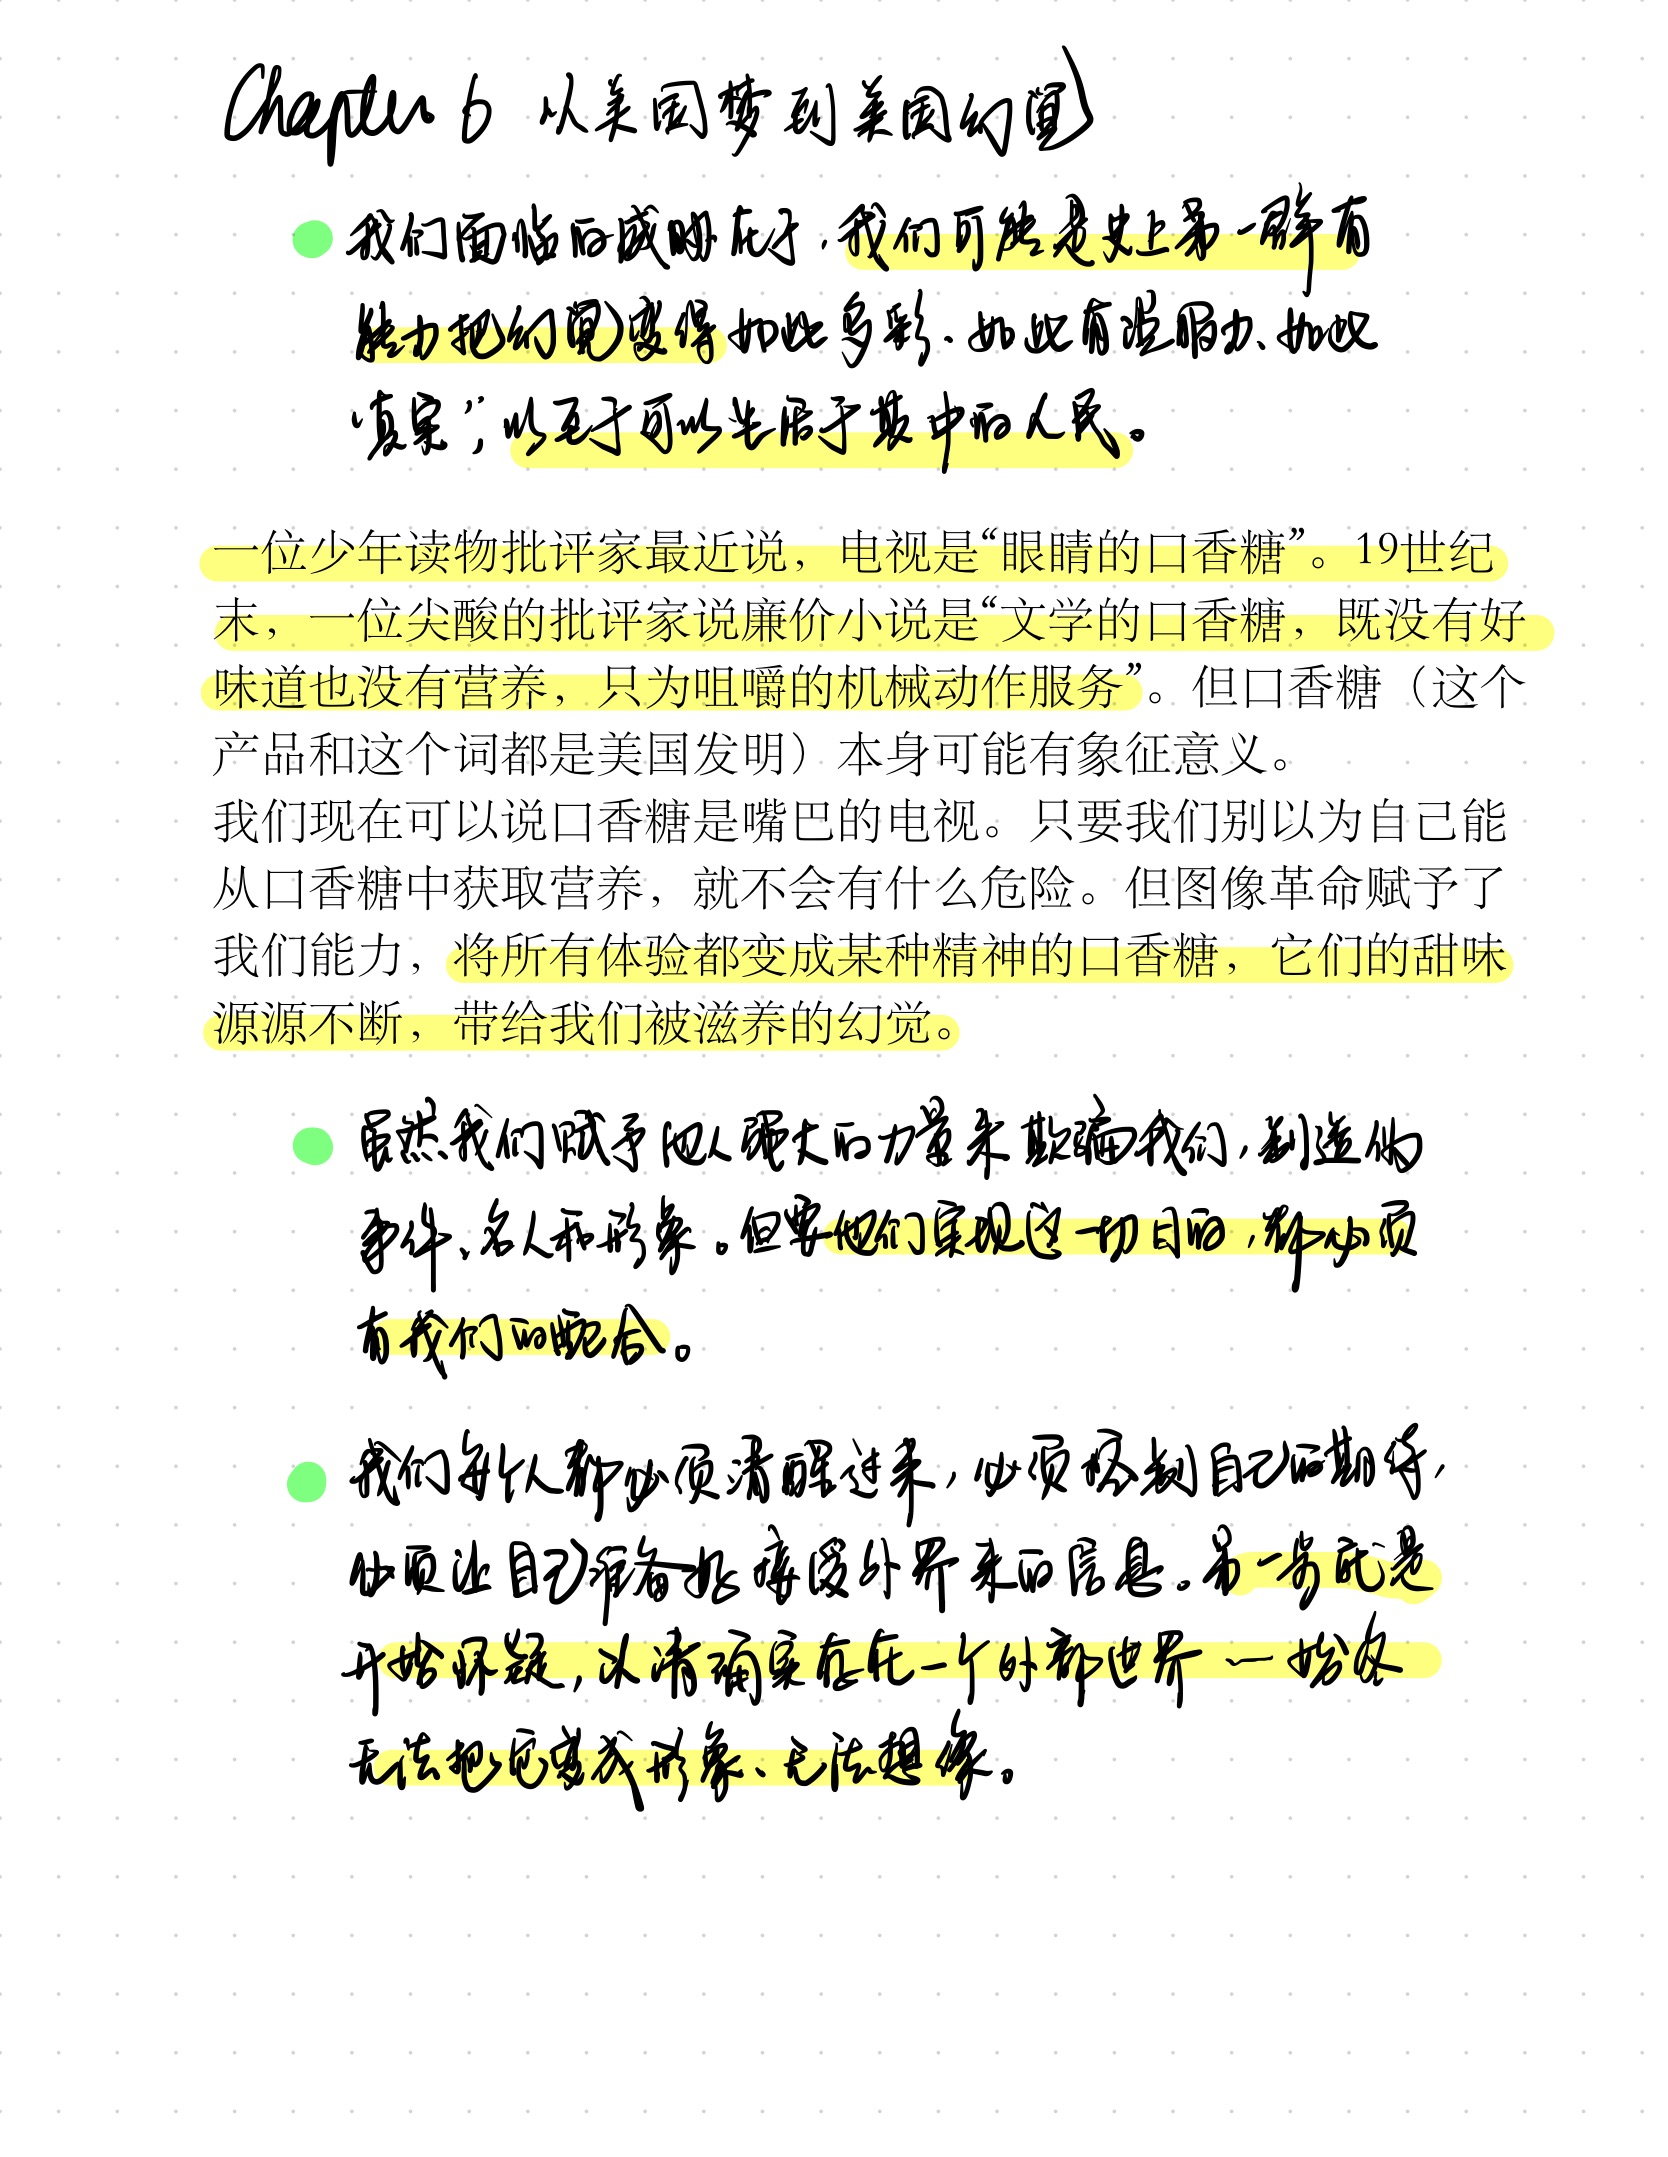 Chapter 6 从美国梦到美国幻觉
我们面临的威胁在于，我们可能是史上第一群有
能力把幻觉变得如此多彩、如此有说服力、如此
“真实”，以至于可以生活于其中的人民。
一位少年读物批评家最近说，电视是“眼睛的口香糖”。19世纪
末，一位尖酸的批评家说廉价小说是“文学的口香糖，既没有好
味道也没有营养，只为咀嚼的机械动作服务”。但口香糖（这个
产品和这个词都是美国发明）本身可能有象征意义。
我们现在可以说口香糖是嘴巴的电视。只要我们别以为自己能
从口香糖中获取营养，就不会有什么危险。但图像革命赋予了
我们能力，将所有体验都变成某种精神的口香糖，它们的甜味
源源不断，带给我们被滋养的幻觉。
虽然我们赋予他人强大的力量来欺骗我们，制造伪
事件、名人和形象。但要他们实现这一切目的，都必须
有我们的配合。
我们每个人都必须清醒过来，必须控制自己的期待，
必须让自己准备好接受外界来的信息。第一步就是
开始怀疑，以清确实存在一个外部世界 — 始终
无法把它变成形象、无法想像。